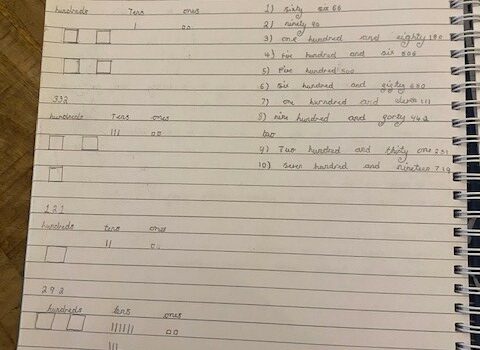 hundreds Tens ones
332
hundreds Tens ones
121
hundreds tens ones
292
hundreds tens ones
1) sixty six 66
2) ninety 90
3) one hundred and eighty 180
4) Five hundred and six 506
5) Five hundred 500
6) six hundred and eigty 680
7) one hundred and eleven 111
8) nine hundred and forty 942
two
9) Two hundred and thirty one 231
10) seven hundred and nineteen 719